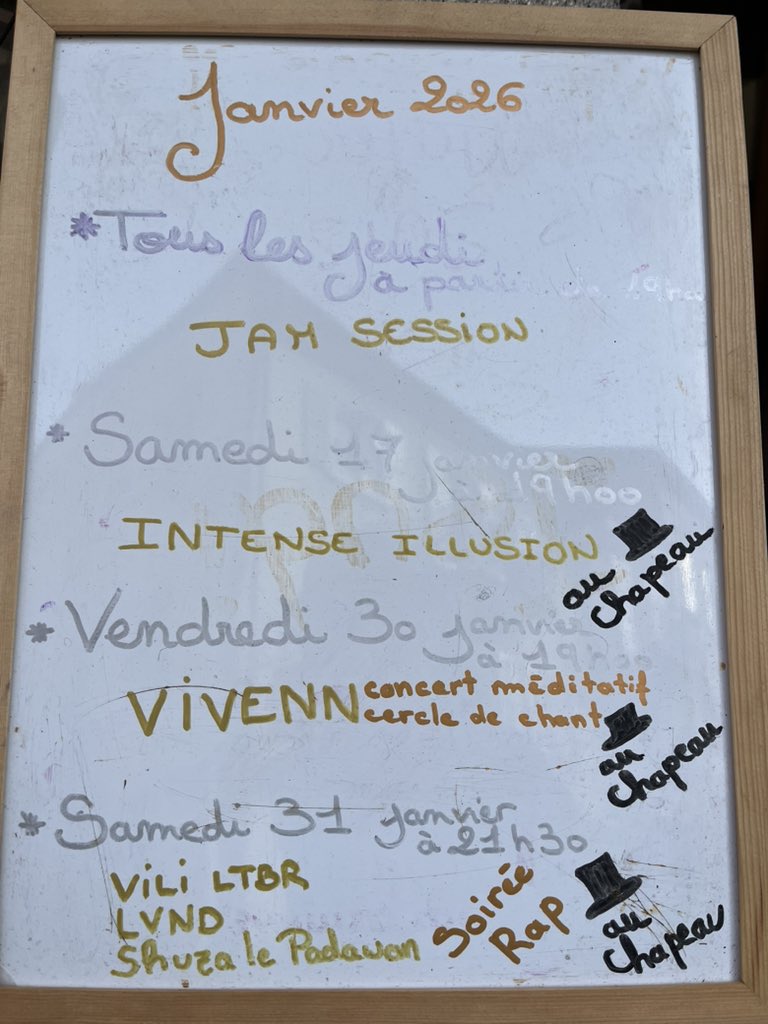 Janvier 2026
* Tous les jeudi
à partir de 19h00
JAM SESSION
* Samedi 17 janvier
à 19h00
INTENSE ILLUSION
au
chapeau
* Vendredi 30 janvier
à 19h00
VIVENN
concert méditatif
cercle de chant
au
chapeau
* Samedi 31 janvier
à 21h30
ViLi LTBR
LVND
Shuza le Padawan
Soirée
Rap
au
chapeau